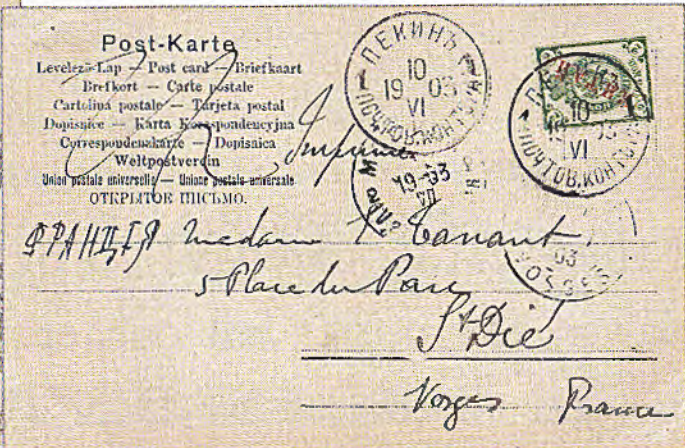 Post-Karte
Levelező-Lap — Post card — Briefkaart
Brefkort — Carte postale
Cartolina postale — Tarjeta postal
Dopisnice — Karta Korespondencyjna
Correspondenzkarte — Dopisnica
Weltpostverein
Union postale universelle — Unione postale universale
ОТКРЫТОЕ ПИСЬМО.
Imprimé
ПЕКИНЪ
10
19 03
VI
ПОЧТОВ. КОНТ.
ПЕКИНЪ
10
19 03
VI
ПОЧТОВ. КОНТ.
19 03
VII
03
ФРАНЦІЯ Madame
5 Place du Parc
St Dié
Vosges France